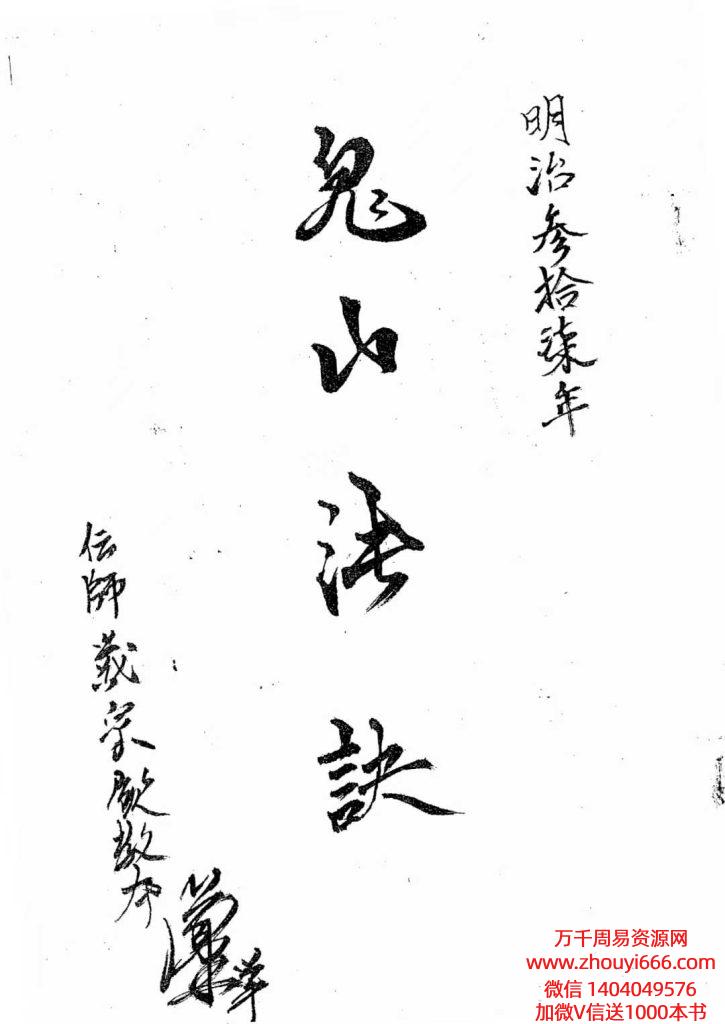 明治参拾柒年
鬼山法訣
伝師
宗
万千周易资源网
www.zhouyi666.com
微信 1404049576
加微V信送1000本书